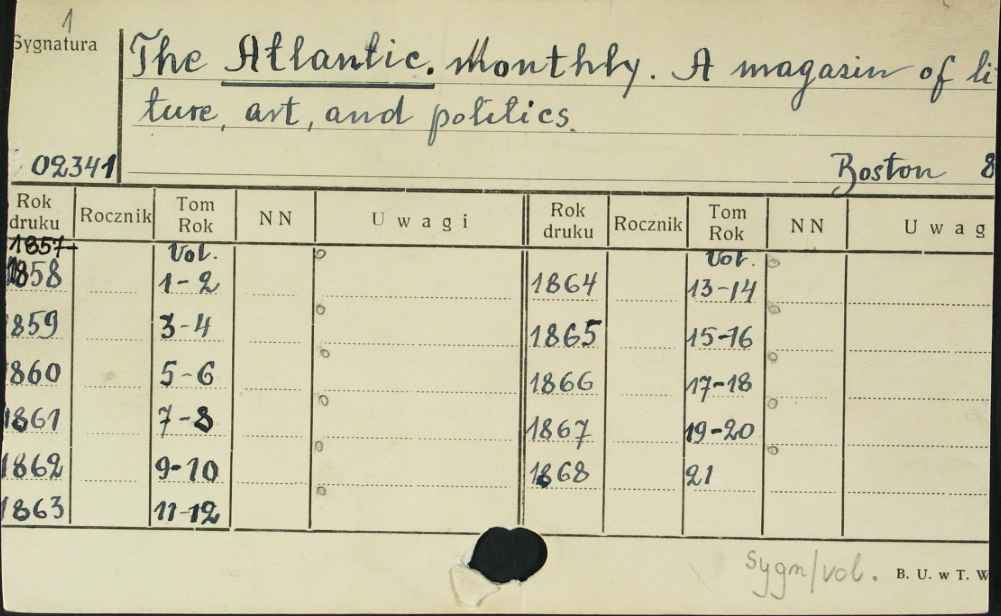 1
Sygnatura
The Atlantic. Monthly. A magasin of li
ture, art, and politics.
02341
Boston 8
Rok druku Rocznik Tom Rok NN Uwagi Rok druku Rocznik Tom Rok NN Uwag
1857+ Vol. Vol.
1858 1-2 1864 13-14
1859 3-4 1865 15-16
1860 5-6 1866 17-18
1861 7-8 1867 19-20
1862 9-10 1868 21
1863 11-12
Sygn/vol. B. U. w T. W